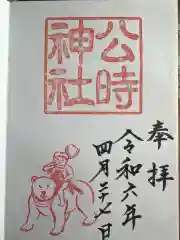 公時
神社
奉拝
令和六年
四月二十七日